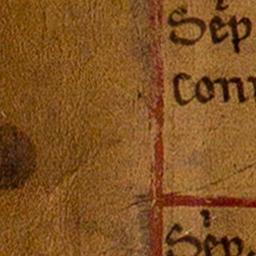 Sep
con
Sep